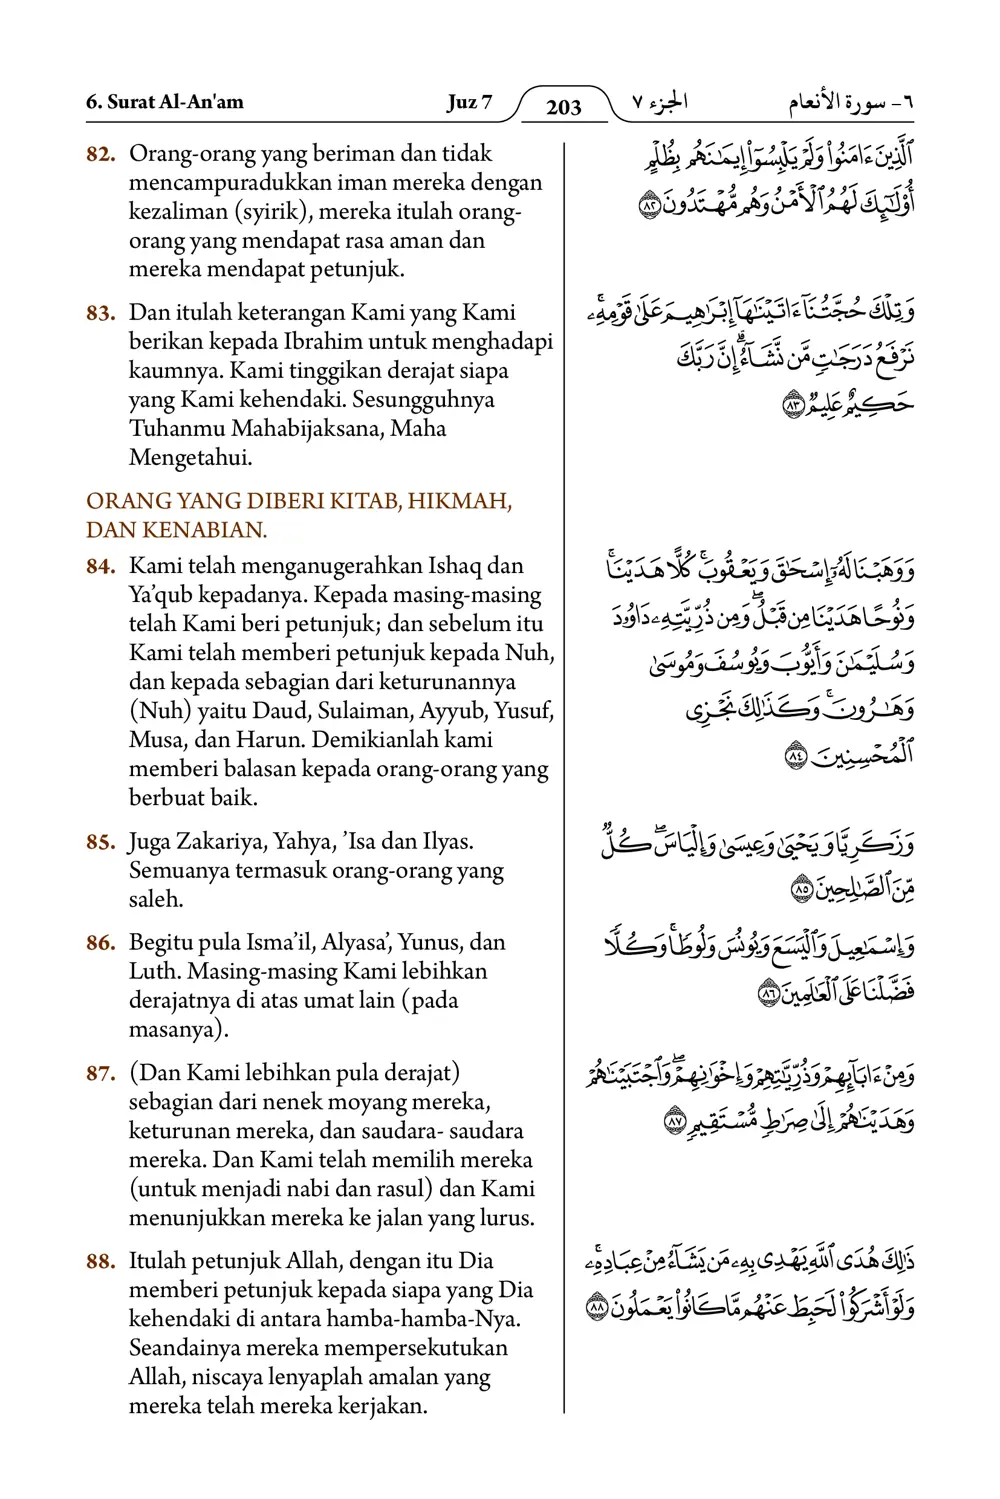 6. Surat Al-An'am
Juz 7
203
الجزء ٧
٦- سورة الأنعام
82. Orang-orang yang beriman dan tidak
mencampuradukkan iman mereka dengan
kezaliman (syirik), mereka itulah orang-
orang yang mendapat rasa aman dan
mereka mendapat petunjuk.
83. Dan itulah keterangan Kami yang Kami
berikan kepada Ibrahim untuk menghadapi
kaumnya. Kami tinggikan derajat siapa
yang Kami kehendaki. Sesungguhnya
Tuhanmu Mahabijaksana, Maha
Mengetahui.
ORANG YANG DIBERI KITAB, HIKMAH,
DAN KENABIAN.
84. Kami telah menganugerahkan Ishaq dan
Ya’qub kepadanya. Kepada masing-masing
telah Kami beri petunjuk; dan sebelum itu
Kami telah memberi petunjuk kepada Nuh,
dan kepada sebagian dari keturunannya
(Nuh) yaitu Daud, Sulaiman, Ayyub, Yusuf,
Musa, dan Harun. Demikianlah kami
memberi balasan kepada orang-orang yang
berbuat baik.
85. Juga Zakariya, Yahya, ’Isa dan Ilyas.
Semuanya termasuk orang-orang yang
saleh.
86. Begitu pula Isma’il, Alyasa’, Yunus, dan
Luth. Masing-masing Kami lebihkan
derajatnya di atas umat lain (pada
masanya).
87. (Dan Kami lebihkan pula derajat)
sebagian dari nenek moyang mereka,
keturunan mereka, dan saudara- saudara
mereka. Dan Kami telah memilih mereka
(untuk menjadi nabi dan rasul) dan Kami
menunjukkan mereka ke jalan yang lurus.
88. Itulah petunjuk Allah, dengan itu Dia
memberi petunjuk kepada siapa yang Dia
kehendaki di antara hamba-hamba-Nya.
Seandainya mereka mempersekutukan
Allah, niscaya lenyaplah amalan yang
mereka telah mereka kerjakan.
ٱلَّذِينَ ءَامَنُوا۟ وَلَمْ يَلْبِسُوٓا۟ إِيمَٰنَهُم بِظُلْمٍ
أُو۟لَٰٓئِكَ لَهُمُ ٱلْأَمْنُ وَهُم مُّهْتَدُونَ ٨٢
وَتِلْكَ حُجَّتُنَآ ءَاتَيْنَٰهَآ إِبْرَٰهِيمَ عَلَىٰ قَوْمِهِۦ ۚ
نَرْفَعُ دَرَجَٰتٍ مَّن نَّشَآءُ ۗ إِنَّ رَبَّكَ
حَكِيمٌ عَلِيمٌ ٨٣
وَوَهَبْنَا لَهُۥٓ إِسْحَٰقَ وَيَعْقُوبَ ۚ كُلًّا هَدَيْنَا ۚ
وَنُوحًا هَدَيْنَا مِن قَبْلُ ۖ وَمِن ذُرِّيَّتِهِۦ دَاوُۥدَ
وَسُلَيْمَٰنَ وَأَيُّوبَ وَيُوسُفَ وَمُوسَىٰ
وَهَٰرُونَ ۚ وَكَذَٰلِكَ نَجْزِى
ٱلْمُحْسِنِينَ ٨٤
وَزَكَرِيَّا وَيَحْيَىٰ وَعِيسَىٰ وَإِلْيَاسَ ۖ كُلٌّ
مِّنَ ٱلصَّٰلِحِينَ ٨٥
وَإِسْمَٰعِيلَ وَٱلْيَسَعَ وَيُونُسَ وَلُوطًا ۚ وَكُلًّا
فَضَّلْنَا عَلَى ٱلْعَٰلَمِينَ ٨٦
وَمِنْ ءَابَآئِهِمْ وَذُرِّيَّٰتِهِمْ وَإِخْوَٰنِهِمْ ۖ وَٱجْتَبَيْنَٰهُمْ
وَهَدَيْنَٰهُمْ إِلَىٰ صِرَٰطٍ مُّسْتَقِيمٍ ٨٧
ذَٰلِكَ هُدَى ٱللَّهِ يَهْدِى بِهِۦ مَن يَشَآءُ مِنْ عِبَادِهِۦ ۚ
وَلَوْ أَشْرَكُوا۟ لَحَبِطَ عَنْهُم مَّا كَانُوا۟ يَعْمَلُونَ ٨٨